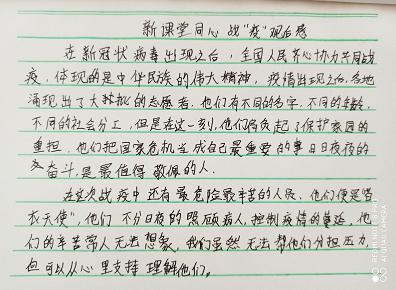 新课堂同心战"疫"观后感
在新冠状病毒出现之后，全国人民齐心协力共同战
疫，体现的是中华民族的伟大精神，疫情出现之后，各地
涌现出了大批的志愿者，他们有不同的名字，不同的年龄，
不同的社会分工，但是在这一刻，他们肩负起了保护家园的
重担，他们把国家危机当成自己最重要的事日日夜夜的
奋斗，是最值得敬佩的人。
在这次战疫中还有最危险最辛苦的人民，他们便是"
衣天使"，他们不分日夜的照顾病人，控制疫情的蔓延，他
们的辛苦常人无法想象，我们虽然无法帮他们分担压力，
但可以从心里支持理解他们。